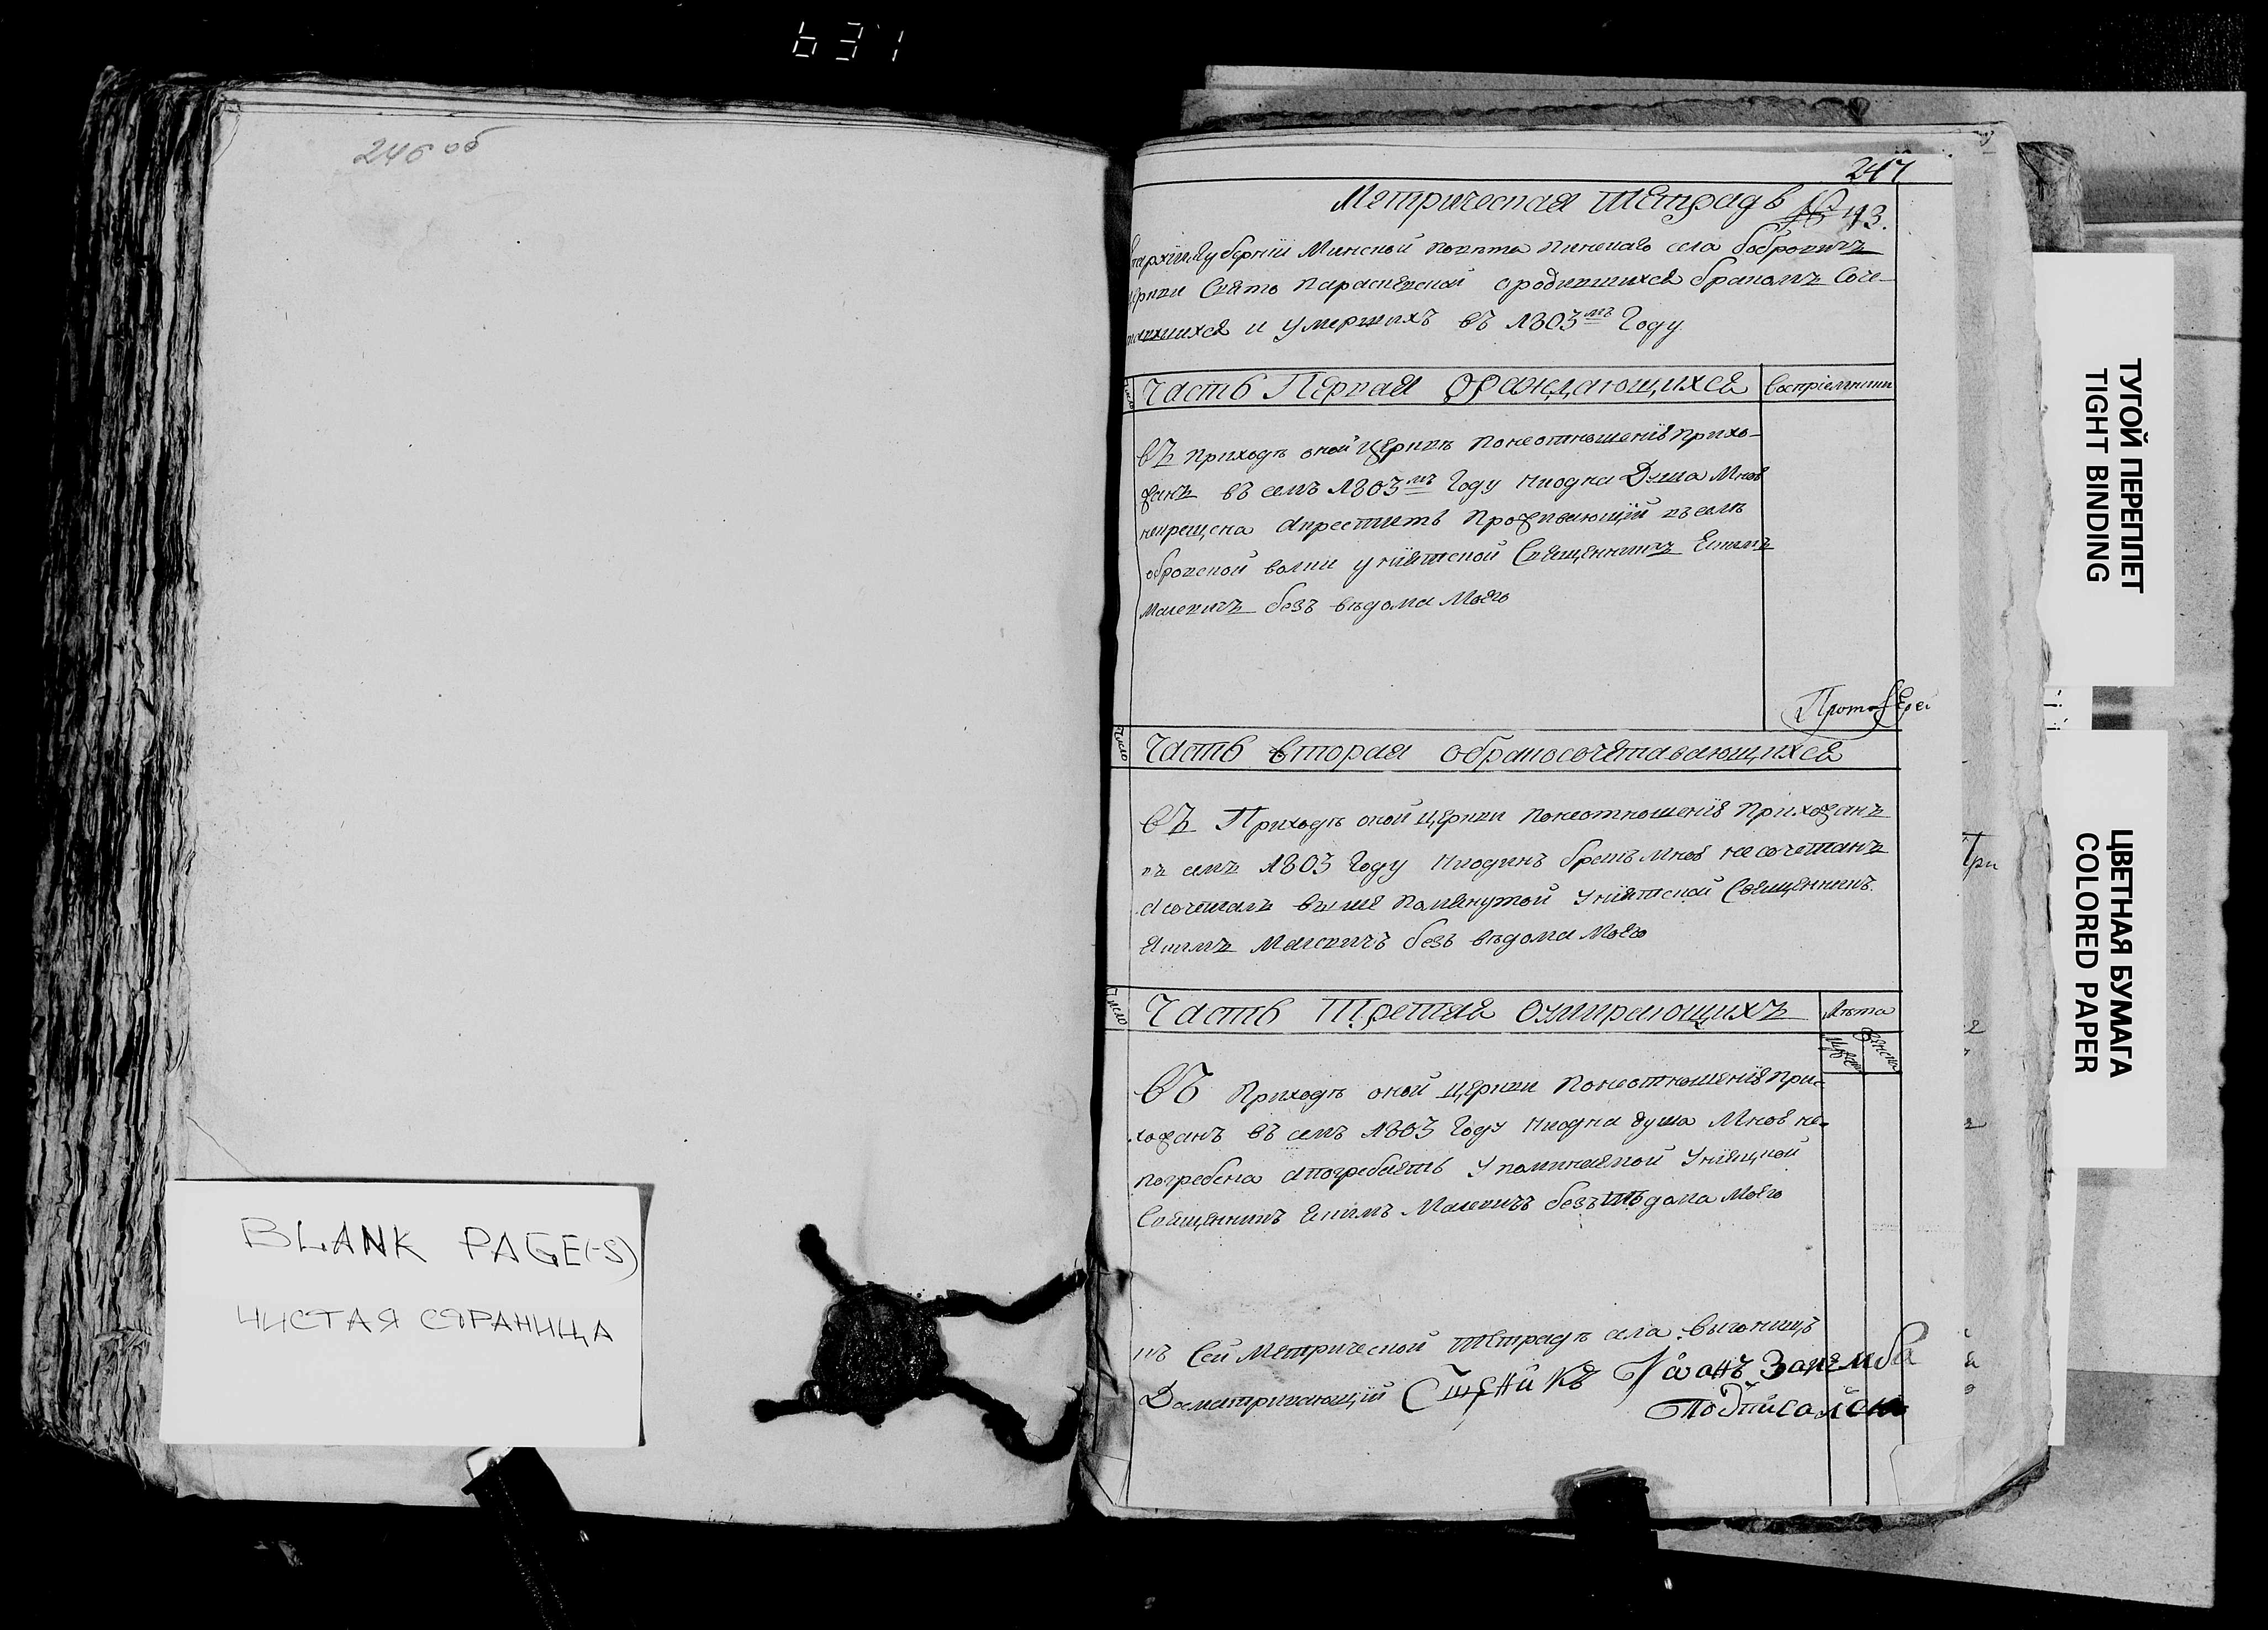 631
246 об
247
Метрическая тетрадь № 43.
Епархіи Губерніи Минской повѣта пинскаго села бобровичъ
церкви Свято параскевской о родившихся бракомъ Соче-
тавшихся и умершихъ въ 1803мъ Году
Число
Часть Первая О раждающихся
воспріемники
въ приходѣ оной церкви по неотношенія прихо-
жанъ въ семъ 1803мъ Году ниодна Душа Мною
некрещена а креститъ проживающій въ селѣ
уніятской Священникъ Екимъ
безъ вѣдома Моего
Протоіерей
Число
Часть вторая о бракосочетавающихся
въ Приходѣ оной церкви по неотношенія прихожанъ
въ семъ 1803 Году ниодинъ бракъ мною несочетанъ
а сочеталъ выше помянутой уніятской Священникъ
Екимъ безъ вѣдома моего
Число
Часть Третая О умирающихъ
Лѣта
Мужеск
Женска
въ приходѣ оной церкви по неотношенія при-
хожанъ въ семъ 1803 Году ниодна душа Мною не-
погребена а погребаетъ упоминаемой уніяцкой
Священникъ Екимъ безъ вѣдома моего
къ Сей Метрической тетрадѣ села выгонищъ
Досматривающій Сщеникъ Іоанъ Занемба
Подписался
BLANK PAGE(-S)
ЧИСТАЯ СТРАНИЦА
ТУГОЙ ПЕРЕПЛЕТ
TIGHT BINDING
ЦВЕТНАЯ БУМАГА
COLORED PAPER